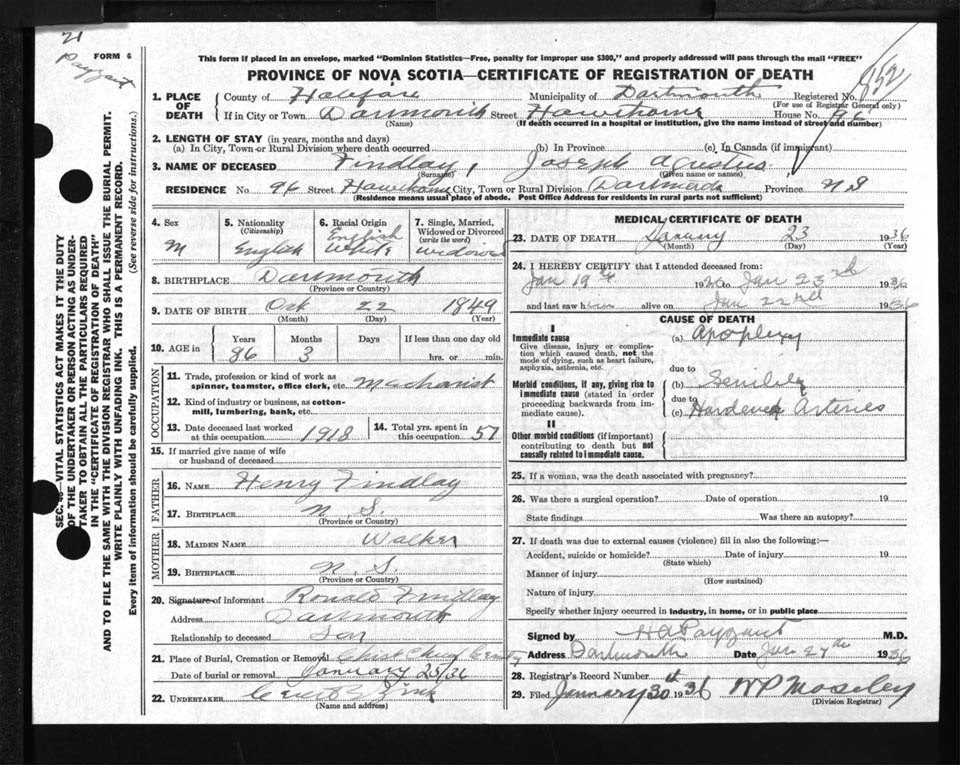 21
Payzant
FORM 6
852
This form if placed in an envelope, marked "Dominion Statistics—Free, penalty for improper use $300," and properly addressed will pass through the mail "FREE"
PROVINCE OF NOVA SCOTIA—CERTIFICATE OF REGISTRATION OF DEATH
1. PLACE OF DEATH
County of Halifax Municipality of Dartmouth Registered No.
(For use of Registrar General only)
If in City or Town Dartmouth Street Hawthorne House No. 96
(Name) (If death occurred in a hospital or institution, give the name instead of street and number)
2. LENGTH OF STAY (in years, months and days)
(a) In City, Town or Rural Division where death occurred (b) In Province (c) In Canada (if immigrant)
3. NAME OF DECEASED Findlay, Joseph
(Surname) (Given name or names)
RESIDENCE No 96 Street Hawthorne City, Town or Rural Division Dartmouth Province N S
(Residence means usual place of abode. Post Office Address for residents in rural parts not sufficient)
SEC. —VITAL STATISTICS ACT MAKES IT THE DUTY
OF THE UNDERTAKER OR PERSON ACTING AS UNDER-
TAKER TO OBTAIN ALL THE PARTICULARS REQUIRED
IN THE "CERTIFICATE OF REGISTRATION OF DEATH"
AND TO FILE THE SAME WITH THE DIVISION REGISTRAR WHO SHALL ISSUE THE BURIAL PERMIT.
WRITE PLAINLY WITH UNFADING INK. THIS IS A PERMANENT RECORD.
Every item of information should be carefully supplied. (See reverse side for instructions.)
4. Sex
M
5. Nationality
(Citizenship)
English
6. Racial Origin
English
White
7. Single, Married,
Widowed or Divorced
(write the word)
Widowed
8. BIRTHPLACE Dartmouth
(Province or Country)
9. DATE OF BIRTH Oct 22 1849
(Month) (Day) (Year)
10. AGE in
Years Months Days If less than one day old
86 3 hrs. or min.
OCCUPATION
11. Trade, profession or kind of work as
spinner, teamster, office clerk, etc. Machanist
12. Kind of industry or business, as cotton-
mill, lumbering, bank, etc.
13. Date deceased last worked
at this occupation 1918
14. Total yrs. spent in
this occupation 57
15. If married give name of wife
or husband of deceased
FATHER
16. NAME Henry Findlay
17. BIRTHPLACE N. S.
(Province or Country)
MOTHER
18. MAIDEN NAME Walker
19. BIRTHPLACE N. S.
(Province or Country)
20. Signature of informant Ronald Findlay
Address Dartmouth
Relationship to deceased Son
21. Place of Burial, Cremation or Removal Christ Church
Date of burial or removal January 25/36
22. UNDERTAKER Zink
(Name and address)
MEDICAL CERTIFICATE OF DEATH
23. DATE OF DEATH January 23 1936
(Month) (Day) (Year)
24. I HEREBY CERTIFY that I attended deceased from:
Jan 19th to Jan 23rd 1936
and last saw him alive on Jan 22nd 1936
CAUSE OF DEATH
I
Immediate cause
Give disease, injury or complica-
tion which caused death, not the
mode of dying, such as heart failure,
asphyxia, asthenia, etc.
(a) Apoplexy
due to
Morbid conditions, if any, giving rise to
immediate cause (stated in order
proceeding backwards from im-
mediate cause).
(b) Senility
due to
(c) Hardened Arteries
II
Other morbid conditions (if important)
contributing to death but not
causally related to immediate cause.
25. If a woman, was the death associated with pregnancy?
26. Was there a surgical operation? Date of operation 19
State findings Was there an autopsy?
27. If death was due to external causes (violence) fill in also the following:—
Accident, suicide or homicide? Date of injury 19
(State which)
Manner of injury
(How sustained)
Nature of injury
Specify whether injury occurred in industry, in home, or in public place
Signed by H A Payzant M.D.
Address Dartmouth Date Jan 27th 1936
28. Registrar's Record Number
29. Filed January 30th 1936 W P Moseley
(Division Registrar)